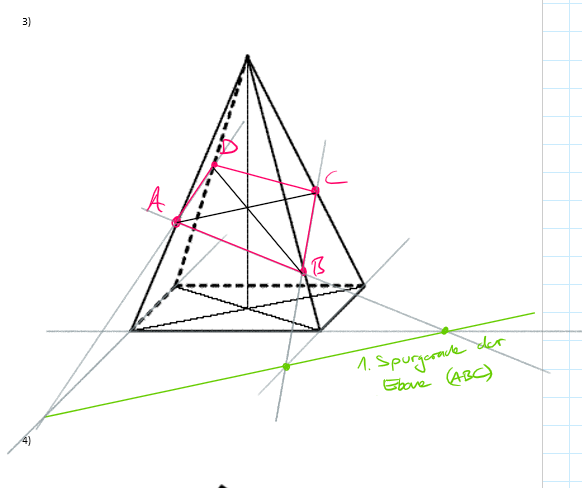 3)
D
C
A
B
1. Spurgerade der
Ebene (ABC)
4)